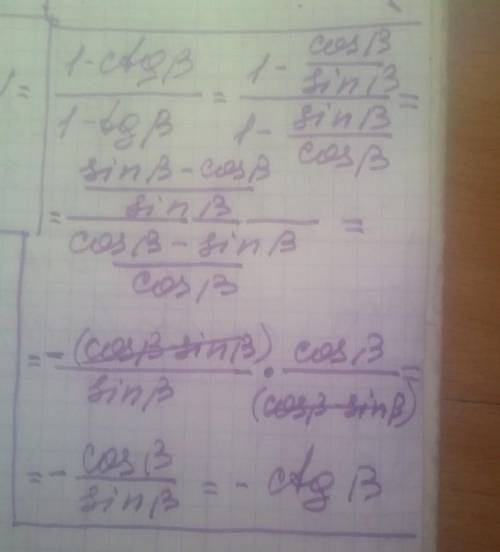 1 - ctg β / 1 - tg β = 1 - cos β / sin β / 1 - sin β / cos β =
= sin β - cos β / sin β / cos β - sin β / cos β =
= - (cos β - sin β) / sin β · cos β / (cos β - sin β) =
= - cos β / sin β = - ctg β